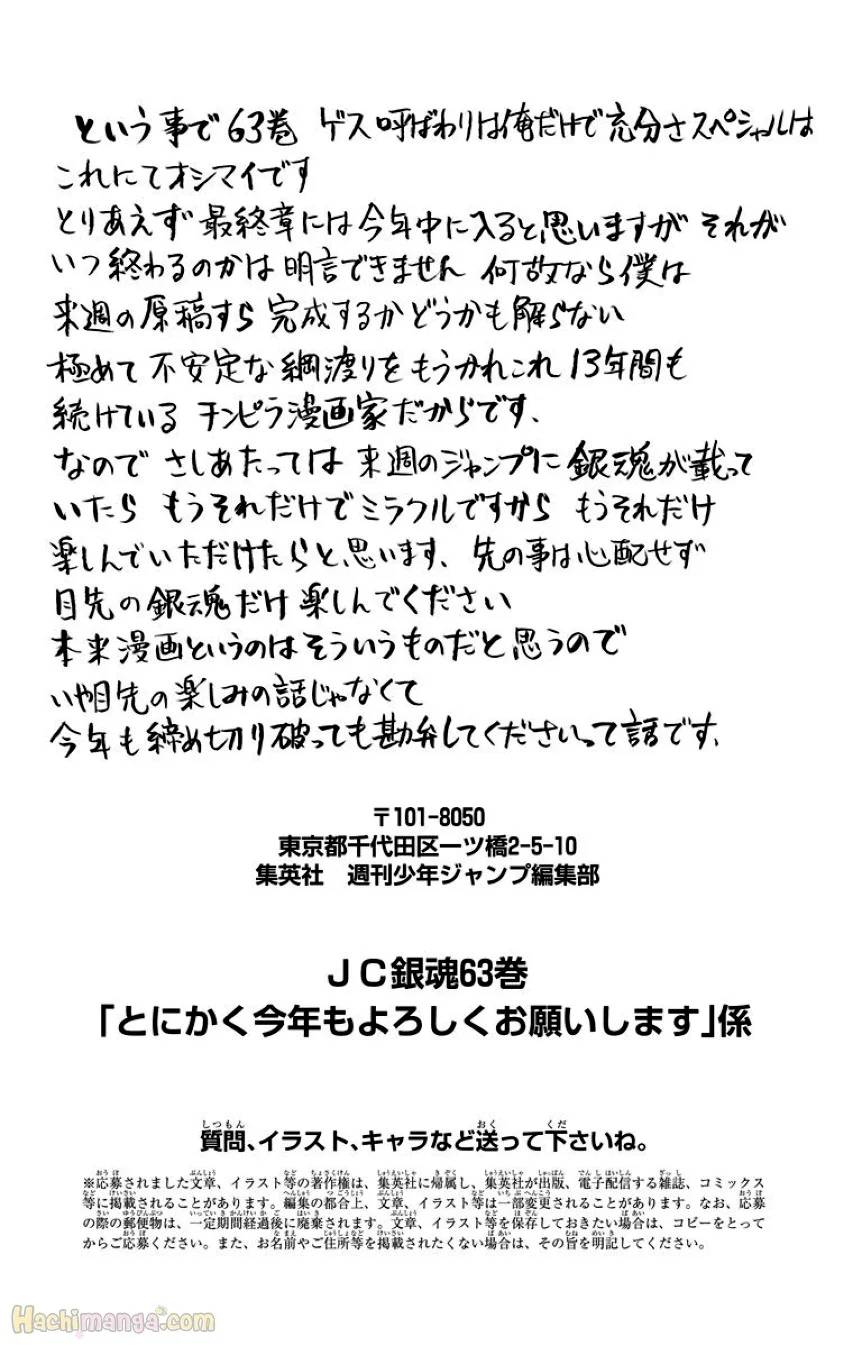 という事で63巻 ゲス呼ばわりは俺だけで充分さスペシャルは
これにてオシマイです
とりあえず最終章には今年中に入ると思いますが それが
いつ終わるのかは明言できません 何故なら僕は
来週の原稿すら完成するかどうかも解らない
極めて不安定な綱渡りをもうかれこれ13年間も
続けているチンピラ漫画家だからです、
なので さしあたっては 来週のジャンプに銀魂が載って
いたら もうそれだけでミラクルですから もうそれだけ
楽しんでいただけたらと思います、先の事は心配せず
目先の銀魂だけ楽しんでください
本来漫画というのはそういうものだと思うので
いや目先の楽しみの話じゃなくて
今年も締め切り破っても勘弁してくださいって話です、
〒101-8050
東京都千代田区一ツ橋2-5-10
集英社 週刊少年ジャンプ編集部
ＪＣ銀魂63巻
「とにかく今年もよろしくお願いします」係
質問、イラスト、キャラなど送って下さいね。
※応募されました文章、イラスト等の著作権は、集英社に帰属し、集英社が出版、電子配信する雑誌、コミックス
等に掲載されることがあります。編集の都合上、文章、イラスト等は一部変更されることがあります。なお、応募
の際の郵便物は、一定期間経過後に廃棄されます。文章、イラスト等を保存しておきたい場合は、コピーをとって
からご応募ください。また、お名前やご住所等を掲載されたくない場合は、その旨を明記してください。
Hachimanga.com